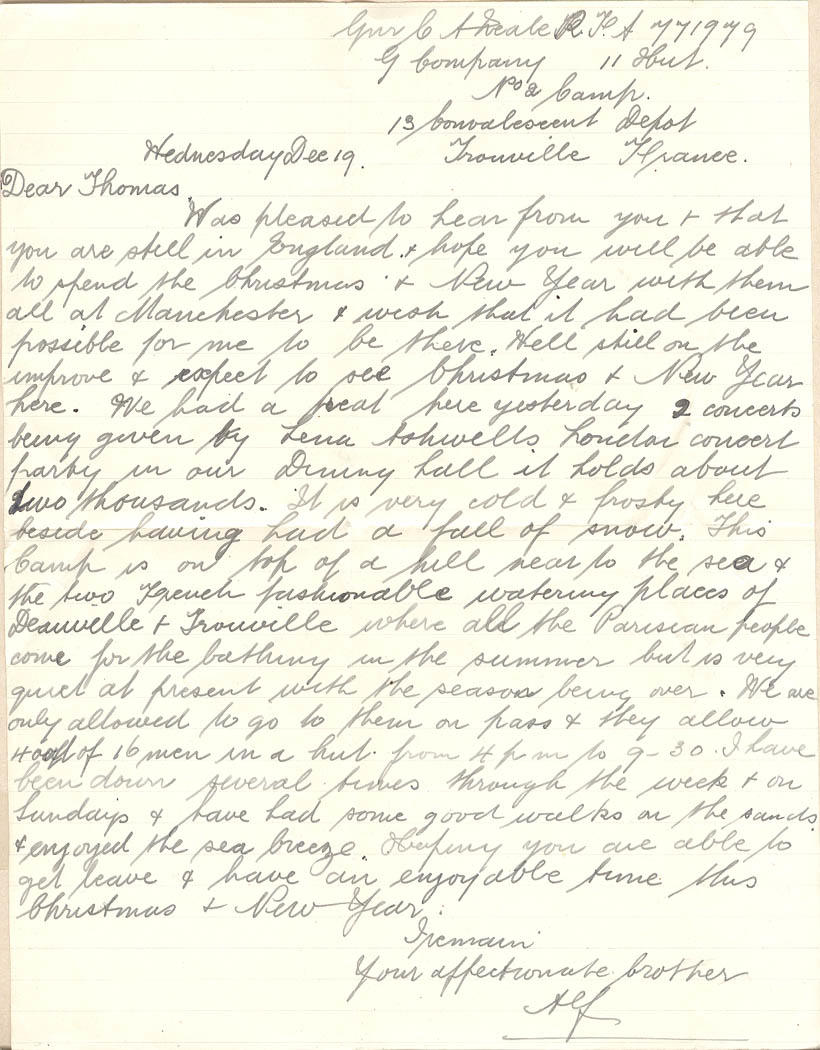 Gnr C A Neale R.F.A 771979
G Company 11 Hut.
No 2 Camp.
13 Convalescent Depot
Wednesday Dec 19. Trouville France.
Dear Thomas,
Was pleased to hear from you + that
you are still in England. + hope you will be able
to spend the Christmas + New Year with them
all at Manchester + wish that it had been
possible for me to be there. Well still on the
improve + expect to see Christmas + New Year
here. We had a treat here yesterday 2 concerts
being given by Lena Ashwells London concert
party in our Dining hall it holds about
two thousands. It is very cold + frosty here
beside having had a fall of snow. This
Camp is on top of a hill near to the sea +
the two French fashionable watering places of
Deauville + Trouville where all the Parisian people
come for the bathing in the summer but is very
quiet at present with the season being over. We are
only allowed to go to them on pass + they allow
4 out of 16 men in a hut. from 4 p m to 9-30. I have
been down several times through the week + on
Sundays + have had some good walks on the sands
+ enjoyed the sea breeze. Hoping you are able to
get leave + have an enjoyable time this
Christmas + New Year.
I remain
Your affectionate brother
Alf